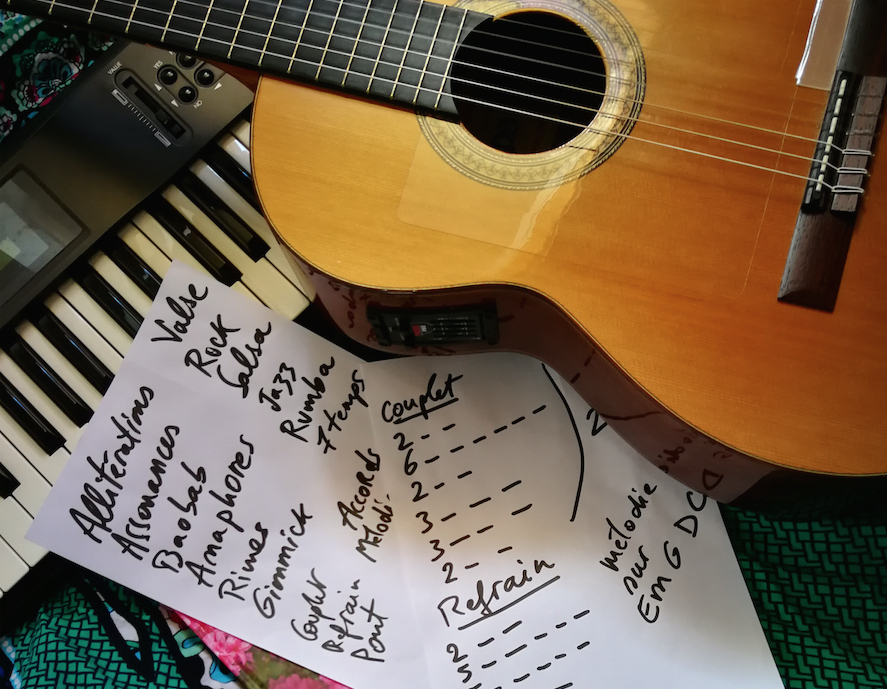 VALUE
YES
NO
Valse
Rock
Salsa
Jazz
Rumba
7 temps
Allitérations
Assonances
Baobab
Anaphores
Rimes
Gimmick
Couplet
Refrain
Pont
Accords
Mélodi-
Couplet
2 - -
6 - - - - - -
2 - -
3 - - -
3 - - -
2 - -
2
Refrain
2 - -
5 - - - - -
mélodie
sur
Em G D C